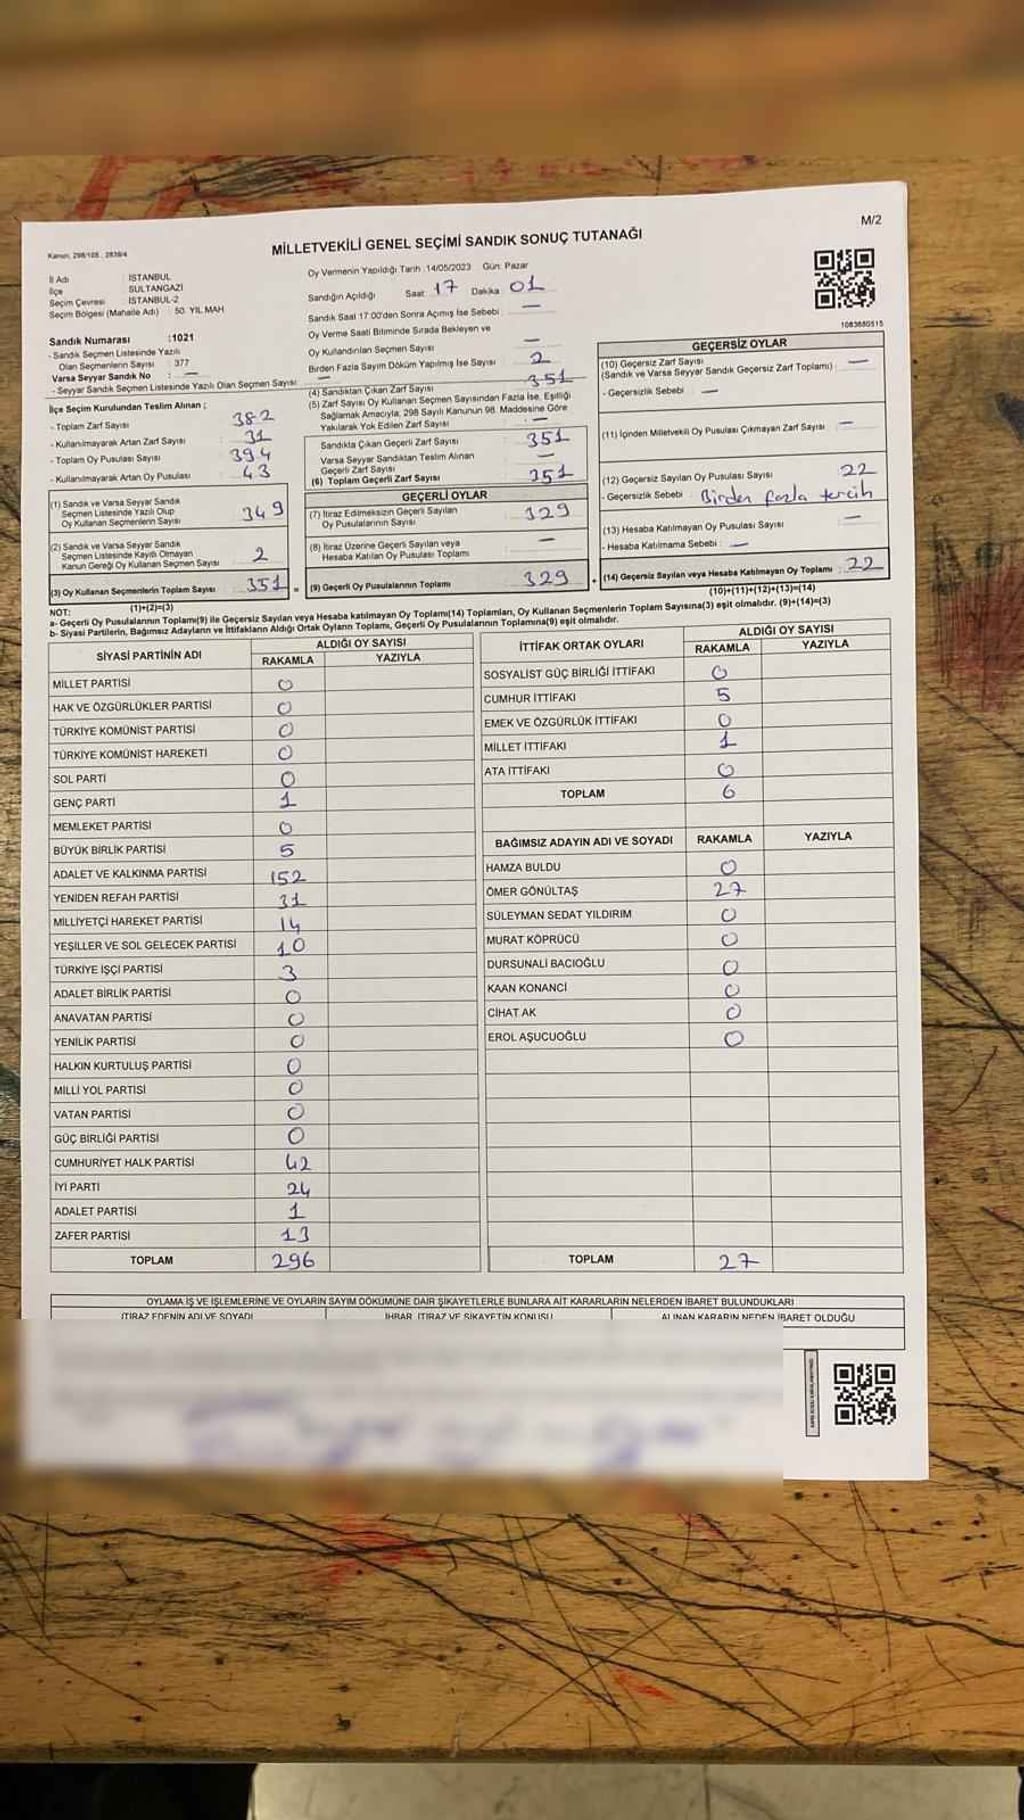 M/2
Kanun: 298/105 , 2839/4
MİLLETVEKİLİ GENEL SEÇİMİ SANDIK SONUÇ TUTANAĞI
İl Adı : İSTANBUL
İlçe : SULTANGAZİ
Seçim Çevresi : İSTANBUL-2
Seçim Bölgesi (Mahalle Adı) : 50. YIL MAH
Oy Vermenin Yapıldığı Tarih :14/05/2023 Gün: Pazar
Sandığın Açıldığı Saat 17 Dakika 01
Sandık Saat 17.00'den Sonra Açılmış İse Sebebi : —
Oy Verme Saati Bitiminde Sırada Bekleyen ve
Oy Kullandırılan Seçmen Sayısı —
Birden Fazla Sayım Döküm Yapılmış İse Sayısı 2
1083680515
Sandık Numarası :1021
- Sandık Seçmen Listesinde Yazılı
Olan Seçmenlerin Sayısı : 377
Varsa Seyyar Sandık No : —
- Seyyar Sandık Seçmen Listesinde Yazılı Olan Seçmen Sayısı : —
İlçe Seçim Kurulundan Teslim Alınan ;
- Toplam Zarf Sayısı : 382
- Kullanılmayarak Artan Zarf Sayısı : 31
- Toplam Oy Pusulası Sayısı : 394
- Kullanılmayarak Artan Oy Pusulası : 43
(1) Sandık ve Varsa Seyyar Sandık
Seçmen Listesinde Yazılı Olup
Oy Kullanan Seçmenlerin Sayısı 349
(2) Sandık ve Varsa Seyyar Sandık
Seçmen Listesinde Kayıtlı Olmayan
Kanun Gereği Oy Kullanan Seçmen Sayısı 2
(3) Oy Kullanan Seçmenlerin Toplam Sayısı 351 =
(1)+(2)=(3)
(4) Sandıktan Çıkan Zarf Sayısı 351
(5) Zarf Sayısı Oy Kullanan Seçmen Sayısından Fazla İse, Eşitliği
Sağlamak Amacıyla, 298 Sayılı Kanunun 98. Maddesine Göre
Yakılarak Yok Edilen Zarf Sayısı : —
Sandıkta Çıkan Geçerli Zarf Sayısı 351
Varsa Seyyar Sandıktan Teslim Alınan
Geçerli Zarf Sayısı —
(6) Toplam Geçerli Zarf Sayısı 351
GEÇERLİ OYLAR
(7) İtiraz Edilmeksizin Geçerli Sayılan
Oy Pusulalarının Sayısı 329
(8) İtiraz Üzerine Geçerli Sayılan veya
Hesaba Katılan Oy Pusulası Toplamı —
(9) Geçerli Oy Pusulalarının Toplamı 329 +
GEÇERSİZ OYLAR
(10) Geçersiz Zarf Sayısı —
(Sandık ve Varsa Seyyar Sandık Geçersiz Zarf Toplamı)
- Geçersizlik Sebebi : —
(11) İçinden Milletvekili Oy Pusulası Çıkmayan Zarf Sayısı —
(12) Geçersiz Sayılan Oy Pusulası Sayısı 22
- Geçersizlik Sebebi : Birden fazla tercih
(13) Hesaba Katılmayan Oy Pusulası Sayısı —
- Hesaba Katılmama Sebebi : —
(14) Geçersiz Sayılan veya Hesaba Katılmayan Oy Toplamı 22
(10)+(11)+(12)+(13)=(14)
NOT:
a- Geçerli Oy Pusulalarının Toplamı(9) ile Geçersiz Sayılan veya Hesaba katılmayan Oy Toplamı(14) Toplamları, Oy Kullanan Seçmenlerin Toplam Sayısına(3) eşit olmalıdır. (9)+(14)=(3)
b- Siyasi Partilerin, Bağımsız Adayların ve İttifakların Aldığı Ortak Oyların Toplamı, Geçerli Oy Pusulalarının Toplamına(9) eşit olmalıdır.
SİYASİ PARTİNİN ADI ALDIĞI OY SAYISI
RAKAMLA YAZIYLA
MİLLET PARTİSİ 0
HAK VE ÖZGÜRLÜKLER PARTİSİ 0
TÜRKİYE KOMÜNİST PARTİSİ 0
TÜRKİYE KOMÜNİST HAREKETİ 0
SOL PARTİ 0
GENÇ PARTİ 1
MEMLEKET PARTİSİ 0
BÜYÜK BİRLİK PARTİSİ 5
ADALET VE KALKINMA PARTİSİ 152
YENİDEN REFAH PARTİSİ 31
MİLLİYETÇİ HAREKET PARTİSİ 14
YEŞİLLER VE SOL GELECEK PARTİSİ 10
TÜRKİYE İŞÇİ PARTİSİ 3
ADALET BİRLİK PARTİSİ 0
ANAVATAN PARTİSİ 0
YENİLİK PARTİSİ 0
HALKIN KURTULUŞ PARTİSİ 0
MİLLİ YOL PARTİSİ 0
VATAN PARTİSİ 0
GÜÇ BİRLİĞİ PARTİSİ 0
CUMHURİYET HALK PARTİSİ 42
İYİ PARTİ 24
ADALET PARTİSİ 1
ZAFER PARTİSİ 13
TOPLAM 296
İTTİFAK ORTAK OYLARI ALDIĞI OY SAYISI
RAKAMLA YAZIYLA
SOSYALİST GÜÇ BİRLİĞİ İTTİFAKI 0
CUMHUR İTTİFAKI 5
EMEK VE ÖZGÜRLÜK İTTİFAKI 0
MİLLET İTTİFAKI 1
ATA İTTİFAKI 0
TOPLAM 6
BAĞIMSIZ ADAYIN ADI VE SOYADI RAKAMLA YAZIYLA
HAMZA BULDU 0
ÖMER GÖNÜLTAŞ 27
SÜLEYMAN SEDAT YILDIRIM 0
MURAT KÖPRÜCÜ 0
DURSUNALİ BACIOĞLU 0
KAAN KONANCİ 0
CİHAT AK 0
EROL AŞUCUOĞLU 0
TOPLAM 27
OYLAMA İŞ VE İŞLEMLERİNE VE OYLARIN SAYIM DÖKÜMÜNE DAİR ŞİKAYETLERLE BUNLARA AİT KARARLARIN NELERDEN İBARET BULUNDUKLARI
İTİRAZ EDENİN ADI VE SOYADI İHBAR, İTİRAZ VE ŞİKAYETİN KONUSU ALINAN KARARIN NEDEN İBARET OLDUĞU